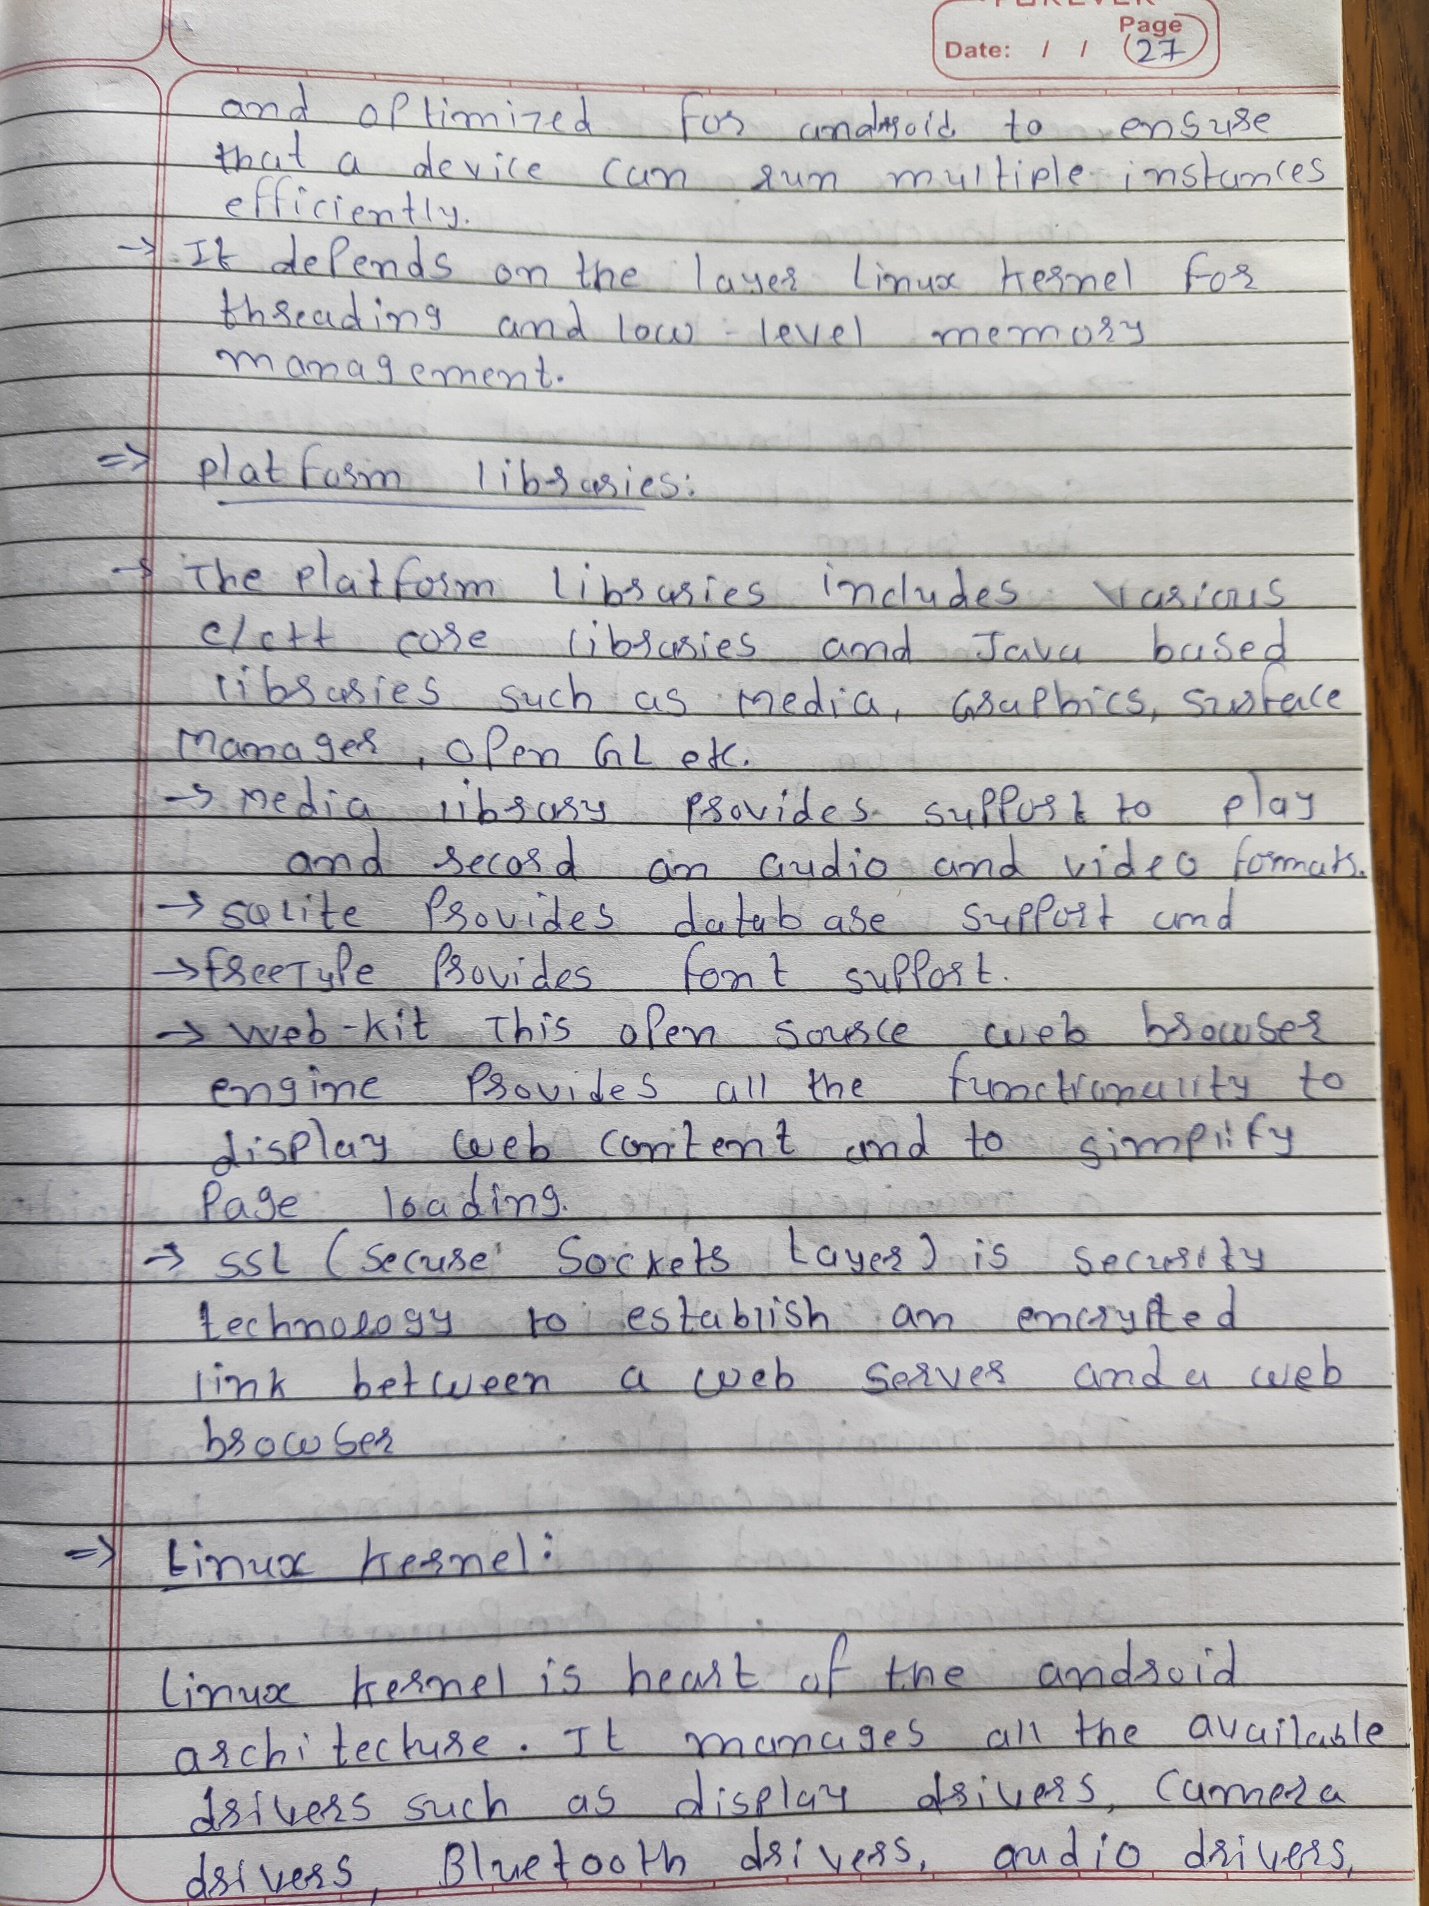 Page
Date: / / 27
and optimized for android to ensure
that a device can run multiple instances
efficiently.
→ It depends on the layer Linux kernel for
threading and low-level memory
management.
=> platform libraries:
→ The platform libraries includes various
c/c++ core libraries and Java based
libraries such as media, Graphics, Surface
Manager, Open GL etc.
→ Media library provides support to play
and record an audio and video formats.
→ SQLite provides database support and
→ FreeType provides font support.
→ Web-kit This open source web browser
engine provides all the functionality to
display web content and to simplify
Page loading.
→ SSL (Secure Sockets Layer) is security
technology to establish an encrypted
link between a web server and a web
browser
=> Linux kernel:
Linux kernel is heart of the android
architecture. It manages all the available
drivers such as display drivers, camera
drivers, Bluetooth drivers, audio drivers,